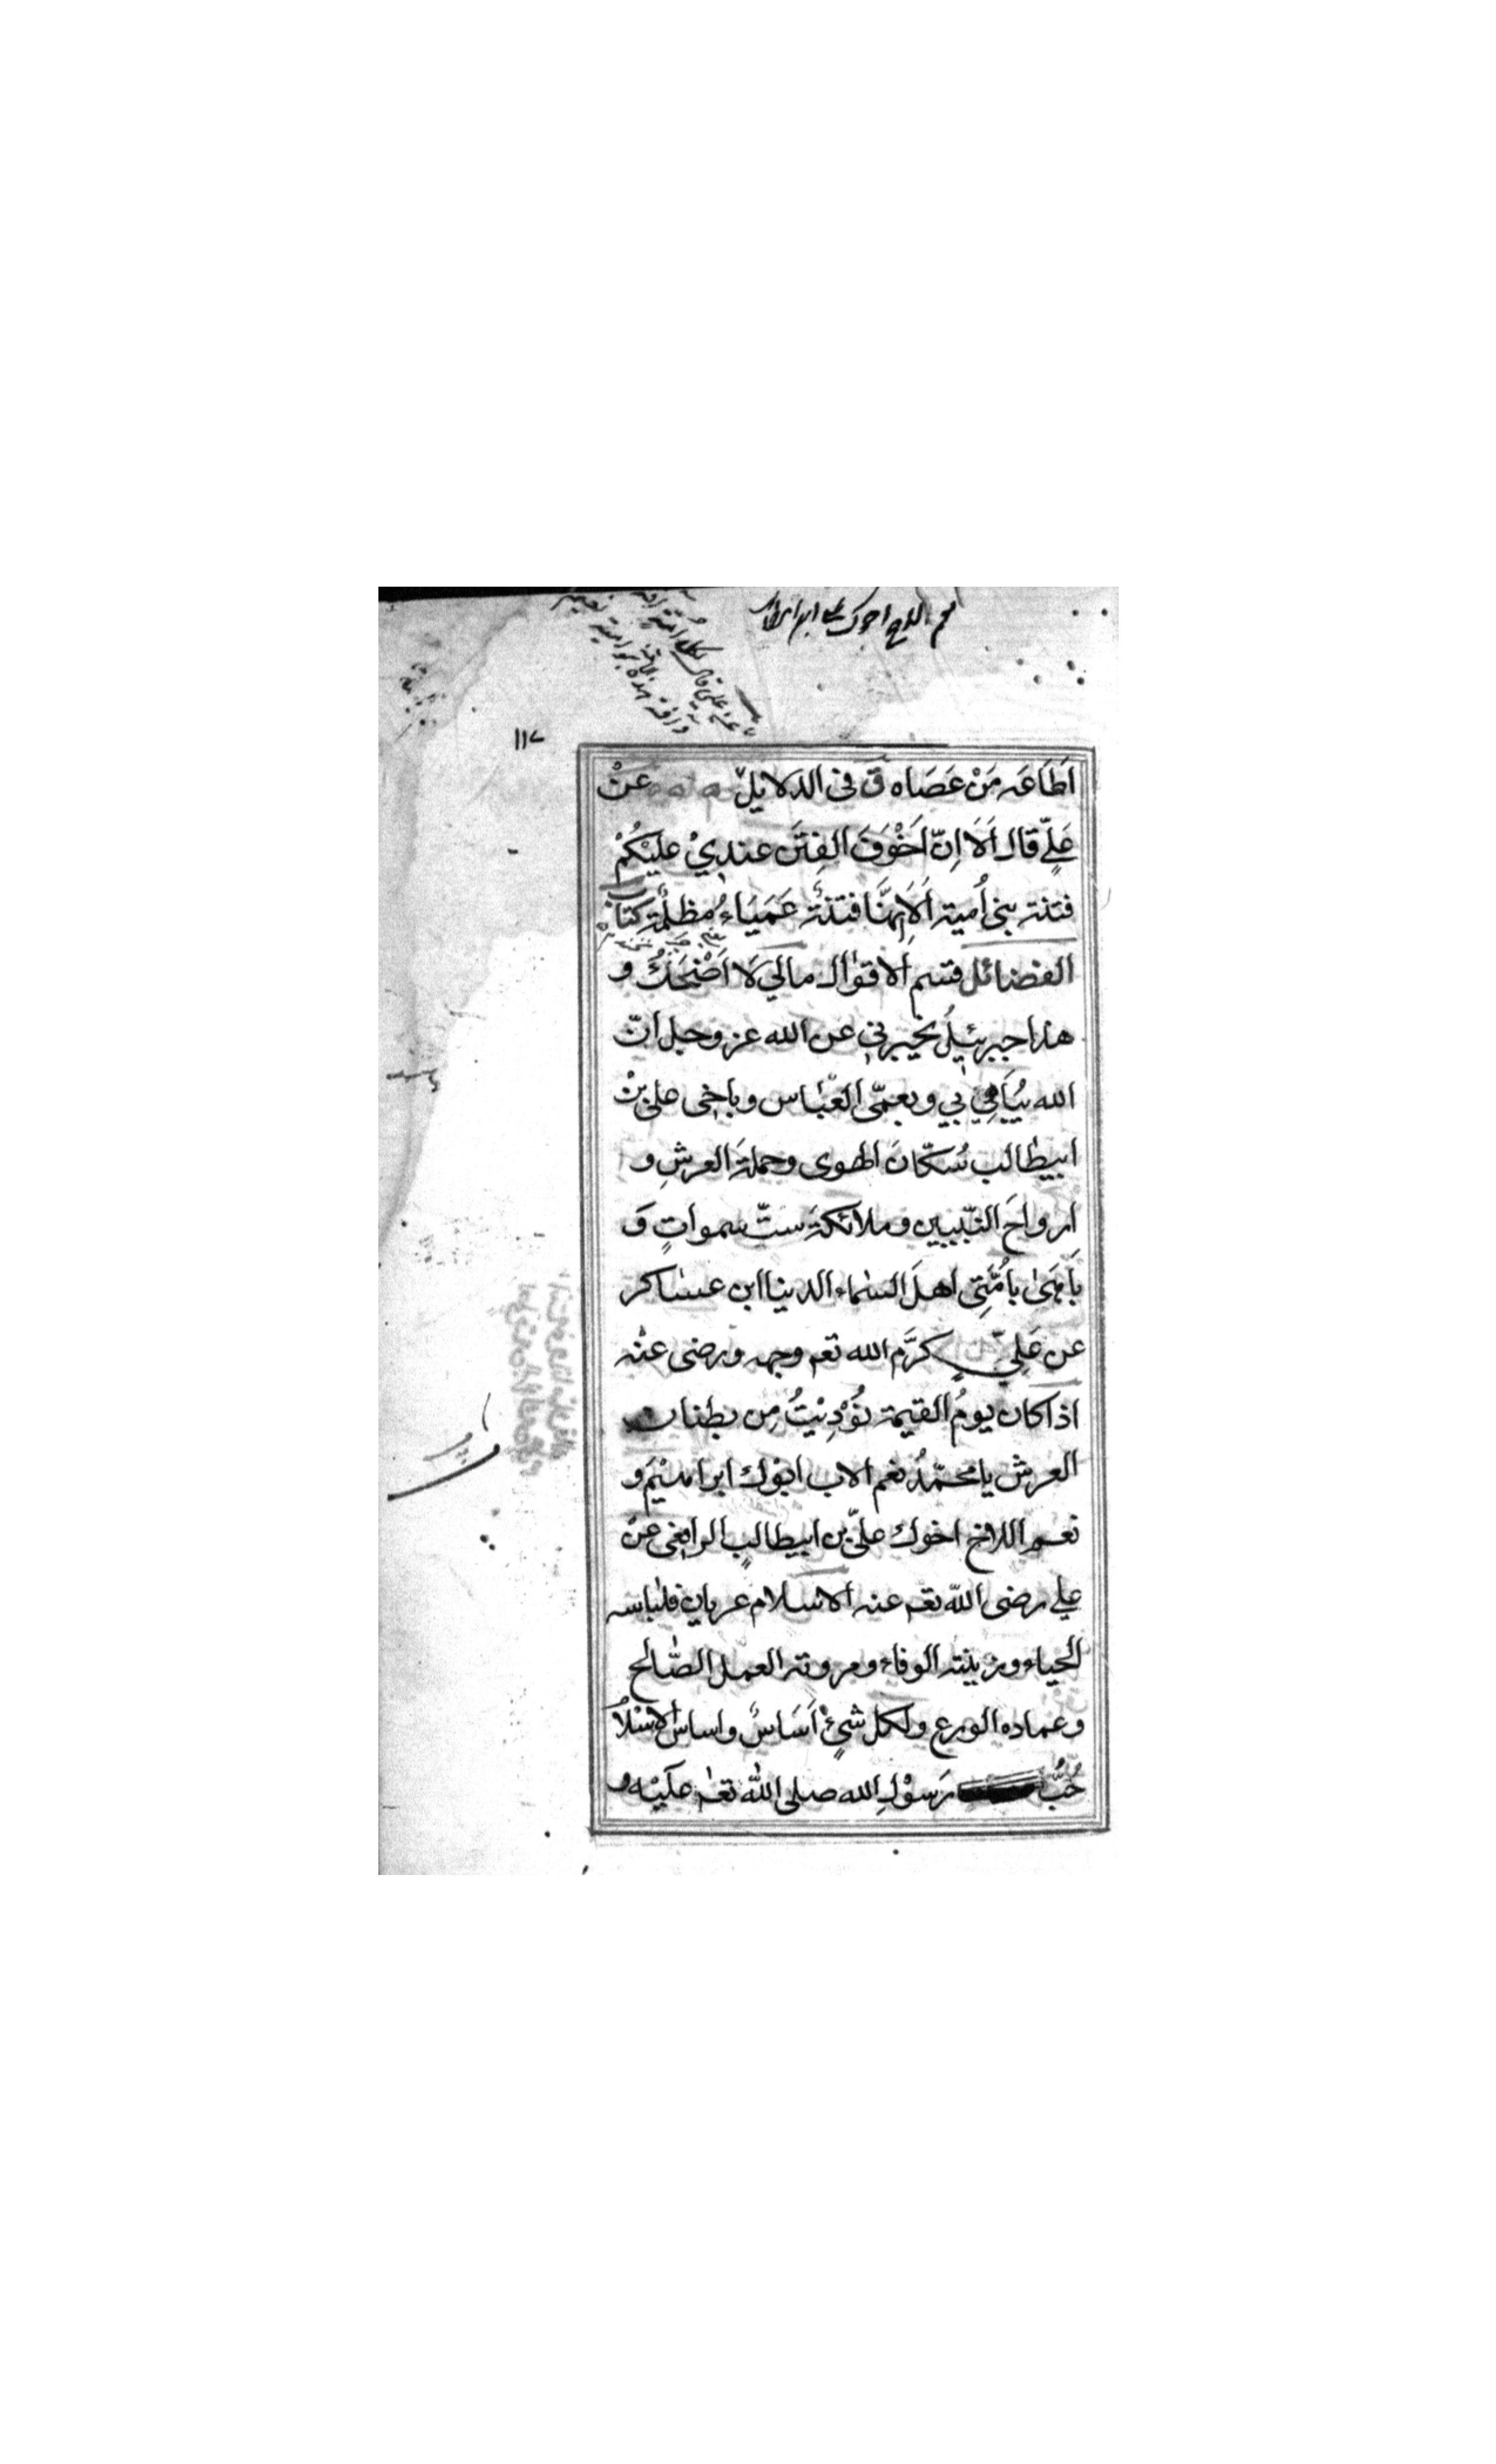 نعم الاخ اخوك علي ابن ابيطالب
عن علي قال لكل امة افة
وافة هذه الامة بنو امية
١١٧
اَطَاعَه مَنْ عَصَاه ق في الدلايل عَنْ
عَليّ قال اَلَا اِنّ اَخْوَفَ الفِتَن عندِيْ عليْكُمْ
فتنة بني اُمية اَلَا اِنّهَا فتنَة عَمَيَاءُ مُظلمَة كتاب
الفضائل قسم الاقوال مالي لَا اَضْحَكُ و
هذا جبرئيلُ يخبرني عن الله عز وجل انّ
الله يُبَاهِي بي وبعمّي العَبّاس وباخي علي بنْ
ابيطالب سُكّانَ الهوى وحملة العرشِ و
ارواحَ النّبيين وملائكة ستّ سمواتٍ وَ
بَاهَىٰ بِاُمّتِي اهلَ السماء الدنيا ابن عساكر
عن عَلِيّ كرَّم الله تعم وجهه ورضى عنه
اذا كان يومُ القيمة نُوْدِيْتُ مِن بطنان
العرش يا محمّدُ نعم الاب ابوك ابراهيمُ و
نعم الاخ اخوك عليّ بن ابيطالبٍ الرافعي عن
علي رضى الله تعم عنه الاسلام عريان فلباسه
الحياء وزينته الوفاء ومروته العمل الصّالح
وعماده الورع ولكل شيءٍ اَسَاسٌ واساس الاسلا
حُبُّ رَسوْلِ الله صلى الله تعم عليْه و